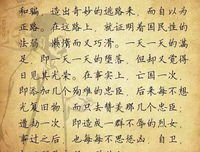 和骗，造出奇妙的逃路来，而自以为
正路。在这路上，就证明着国民性的
怯弱，懒惰而又巧滑。一天一天的满
足，即一天一天的堕落，但却又觉得
日见其光荣。在事实上，亡国一次，
即添加几个殉难的忠臣，后来每不想
光复旧物，而只去赞美那几个忠臣；
遭劫一次，即造成一群不辱的烈女，
事过之后，也每每不思惩凶，自卫，